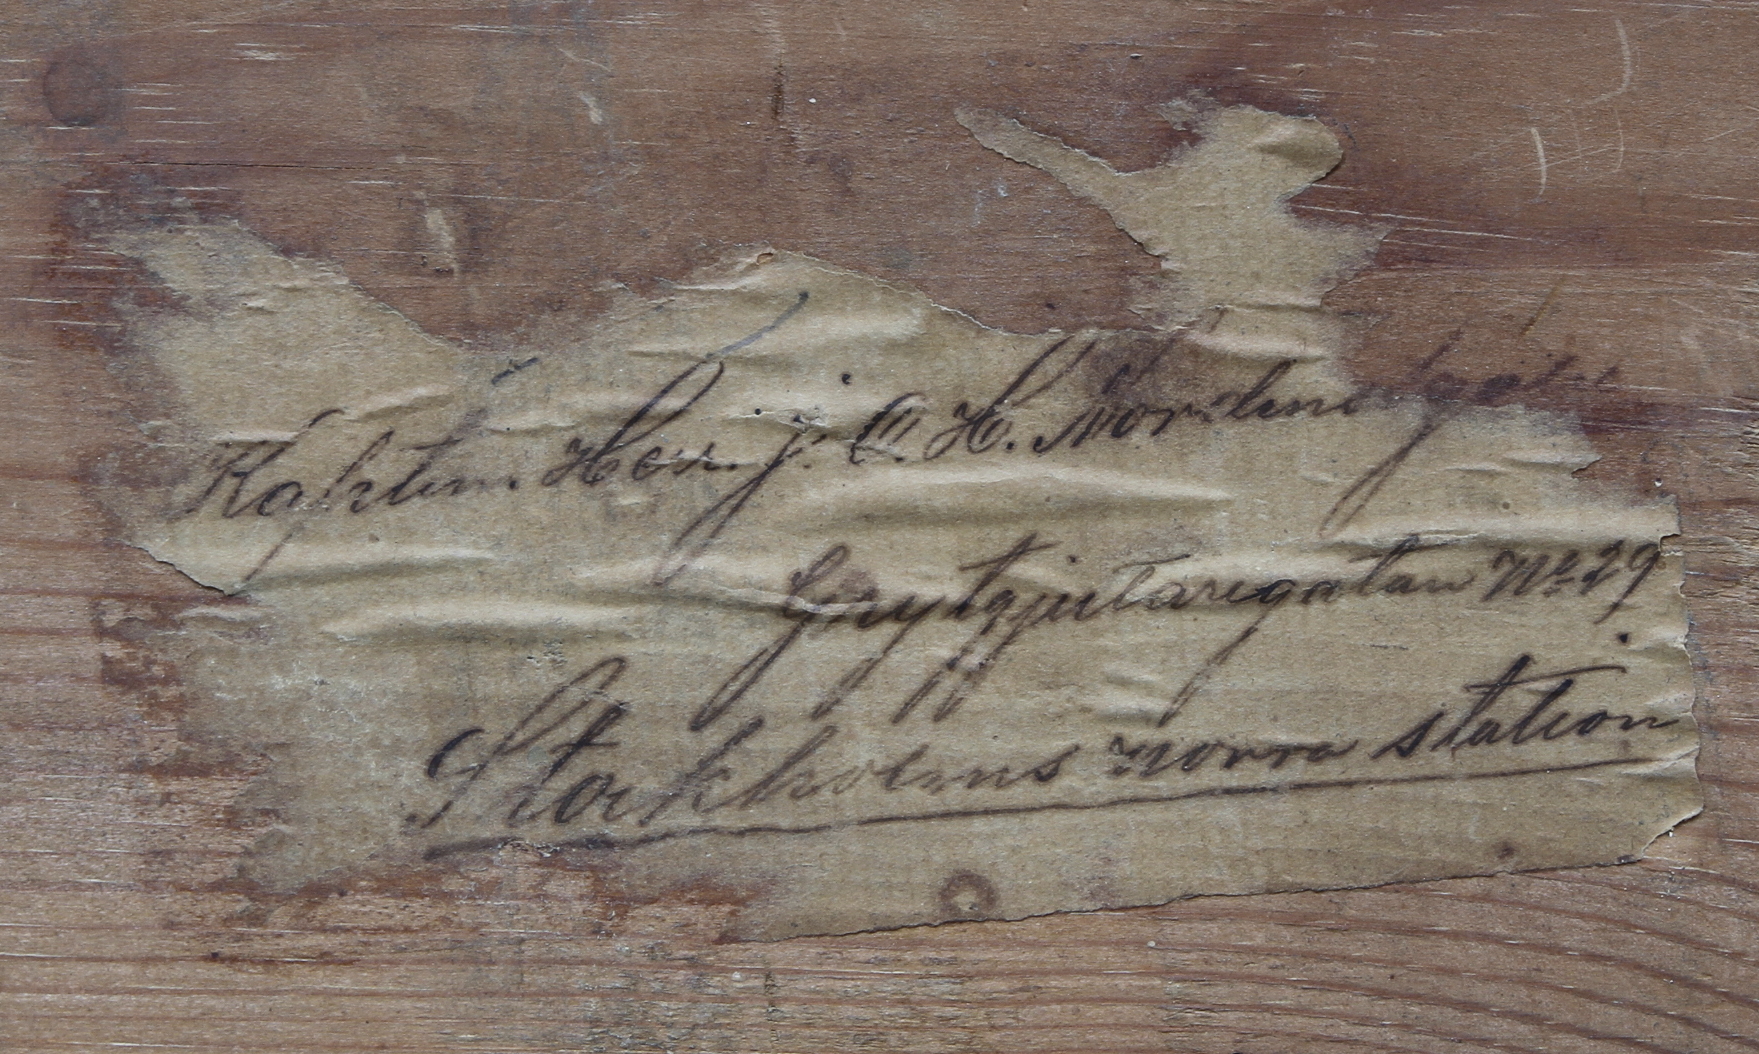 Kapten Herr J. O. H. Nordensk
Grytgjutaregatan No 29
Stockholms norra station